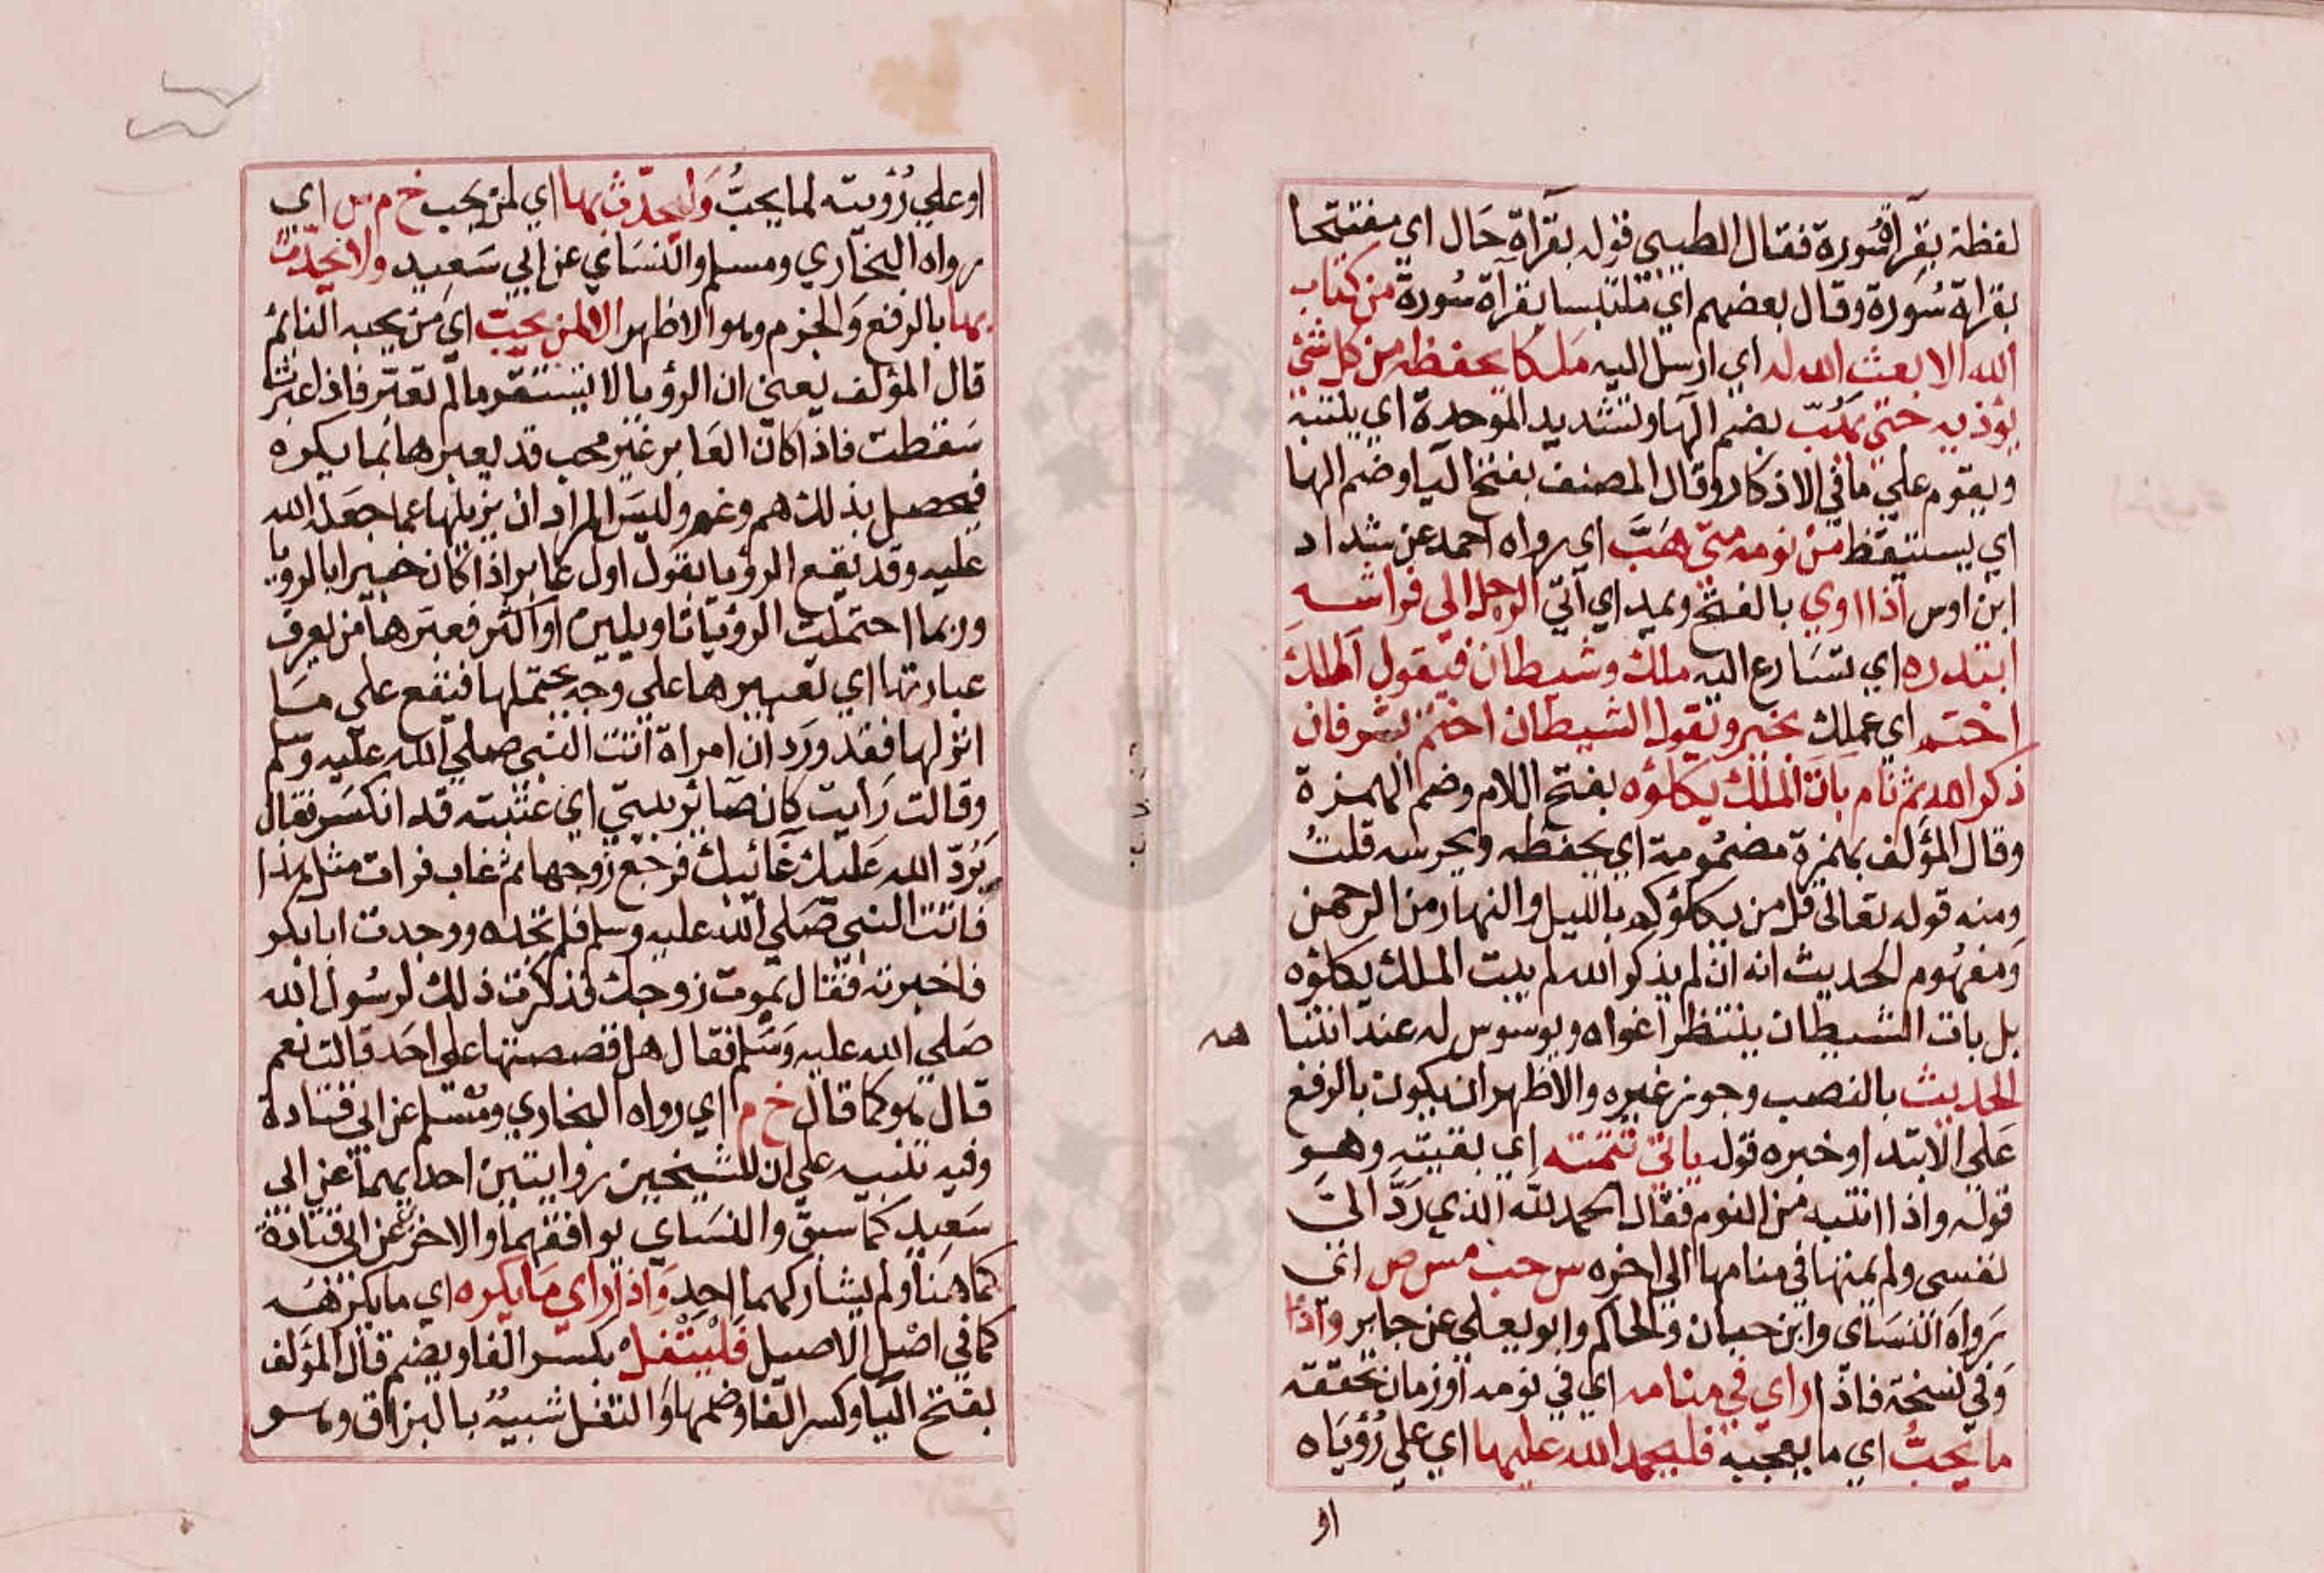 لفظة بقرآة سورة فقال الطيبي قوله بقرآة حال اي مفتتحا
بقراة سورة وقال بعضهم اي متلبسا بقرآة سورة من كتاب
الله الا بعث الله له اي ارسل اليه ملكا يحفظه من كل شئ
يؤذيه حتى يهب بضم الها وتشديد الموحدة اي ينتبه
ويقوم علي ما في الاذكار وقال المصنف بفتح اليا وضم الها
اي يستيقظ من نومه متى هب اي رواه احمد عن شداد
ابن اوس اذا اوي بالفتح ويمد اي آتي الرجل الى فراشه
ابتدره اي تسارع اليه ملك وشيطان فيقول الملك
اختم اي عملك بخير ويقول الشيطان اختم بشر فان
ذكر الله ثم نام بات الملك يكلؤه بفتح اللام وضم الهمزة
وقال المؤلف بهمزة مضمومة اي يحفظه ويحرسه قلت
ومنه قوله تعالى قل من يكلؤكم بالليل والنهار من الرحمن
ومفهوم الحديث انه ان لم يذكر الله لم يبت الملك يكلؤه
بل بات الشيطان ينتظر اغواه ويوسوس له عند انتبا
هه
الحديث بالنصب وجوز غيره والاظهر ان يكون بالرفع
على الابتدا وخبره قوله ياتي تتمته اي بقيته وهو
قوله واذا انتبه من النوم فقال الحمد لله الذي رد الي
نفسي ولم يمتها في منامها الى اخره س حب مس ص اي
رواه النساى وابن حبان والحاكم وابو يعلى عن جابر واذا
وفي نسخة فاذا راي في منامه اي في نومه او زمان تحققه
ما يحب اي ما يعجبه فليحمد الله عليها اي علي رؤياه
او
او علي رؤيته لما يحب وليحدث بها اي لمن يحب خ م س اي
رواه البخاري ومسلم والنساي عن ابي سعيد ولا يحدث
بها بالرفع والجزم وهو الاظهر الا لمن يحب اي من يحبه النائم
قال المؤلف يعني ان الرؤيا لا تستقر مالم تعبر فاذا عبرت
سقطت فاذا كان العابر غير محب قد يعبرها بما يكره
فيحصل بذلك هم وغم وليس المراد ان يزيلها عما جعله الله
عليه وقد تقع الرؤيا بقول اول عابر اذا كان خبيرا بالرويا
وربما احتملت الرؤيا تاويلين او اكثر فعبرها من يعرف
عبارتها اي تعبيرها علي وجه يحتملها فتقع على مسا
اتولها فقد ورد ان امراة اتت النبي صلي الله عليه وسلم
وقالت رايت كان صائر بيتي اي عتبته قد انكسر فقال
يرد الله عليك غائبك فرجع زوجها ثم غاب فرات مثل هذا
فاتت النبي صلي الله عليه وسلم فلم تجده ووجدت ابا بكر
فاخبرته فقال يموت زوجك فذكرت ذلك لرسول الله
صلي الله عليه وسلم فقال هل قصصتها على احد قالت نعم
قال هو كما قال خ م اي رواه البخاري ومسلم عن ابي قتادة
وفيه تنبيه علي ان للشيخين روايتين احدايهما عن ابي
سعيد كما سبق والنساي يوافقهما والاخرى عن ابي قتادة
كما هنا ولم يشاركهما احد واذا راي ما يكره اي ما يكرهه
كما في اصل الاصيل فليتفل بكسر الفا ويضم قال المؤلف
بفتح اليا وكسر الفا وضمها والتفل شبيه بالبزاق وهو